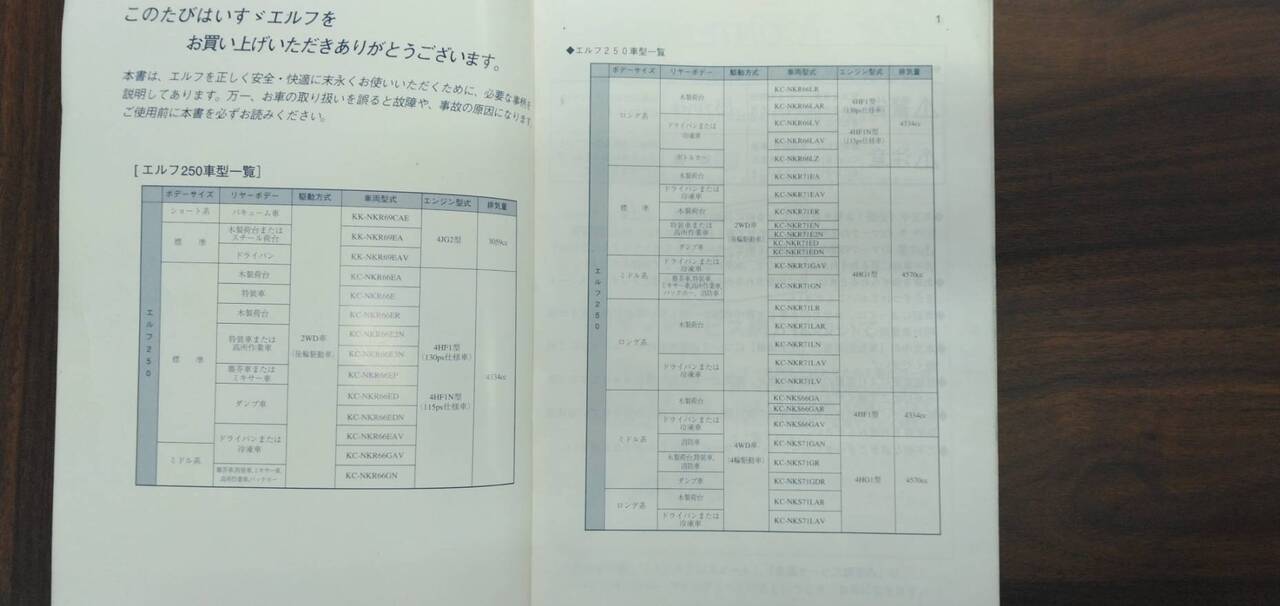 このたびはいすゞエルフを
お買い上げいただきありがとうございます。
本書は、エルフを正しく安全・快適に末永くお使いいただくために、必要な事柄を
説明してあります。万一、お車の取り扱いを誤ると故障や、事故の原因になります
ご使用前に本書を必ずお読みください。
[エルフ250車型一覧]
ボデーサイズ リヤーボデー 駆動方式 車両型式 エンジン型式 排気量
エルフ250
ショート系 バキューム車 KK-NKR69CAE
標準 木製荷台または
スチール荷台 KK-NKR69EA 4JG2型 3059cc
ドライバン KK-NKR69EAV
標準 木製荷台 KC-NKR66EA
特装車 KC-NKR66E
木製荷台 KC-NKR66ER
特装車または
高所作業車 KC-NKR66E2N
KC-NKR66E3N
2WD車
(後輪駆動車)
4HF1型
(130ps仕様車)
4HF1N型
(115ps仕様車)
4334cc
塵芥車または
ミキサー車 KC-NKR66EP
ダンプ車 KC-NKR66ED
KC-NKR66EDN
ドライバンまたは
冷凍車 KC-NKR66EAV
ミドル系 KC-NKR66GAV
塵芥車,特装車,ミキサー車,
高所作業車,バックホー KC-NKR66GN
1
◆エルフ250車型一覧
ボデーサイズ リヤーボデー 駆動方式 車両型式 エンジン型式 排気量
エルフ250
ロング系 木製荷台 KC-NKR66LR
KC-NKR66LAR
4HF1型
(130ps仕様車)
ドライバンまたは
冷凍車 KC-NKR66LV
KC-NKR66LAV
4HF1N型
(115ps仕様車)
4334cc
ボトルカー KC-NKR66LZ
標準 木製荷台 KC-NKR71EA
ドライバンまたは
冷凍車 KC-NKR71EAV
木製荷台 KC-NKR71ER
特装車または
高所作業車 KC-NKR71EN
KC-NKR71E2N
ダンプ車 KC-NKR71ED
KC-NKR71EDN
2WD車
(後輪駆動車)
ミドル系 ドライバンまたは
冷凍車 KC-NKR71GAV
塵芥車,特装車,
ミキサー車,高所作業車,
バックホー,消防車 KC-NKR71GN
4HG1型 4570cc
ロング系 木製荷台 KC-NKR71LR
KC-NKR71LAR
KC-NKR71LN
ドライバンまたは
冷凍車 KC-NKR71LAV
KC-NKR71LV
ミドル系 木製荷台 KC-NKS66GA
KC-NKS66GAR
ドライバンまたは
冷凍車 KC-NKS66GAV
4HF1型 4334cc
消防車 KC-NKS71GAN
木製荷台,特装車,
消防車 KC-NKS71GR
ダンプ車 KC-NKS71GDR
4WD車
(4輪駆動車)
4HG1型 4570cc
ロング系 木製荷台 KC-NKS71LAR
ドライバンまたは
冷凍車 KC-NKS71LAV